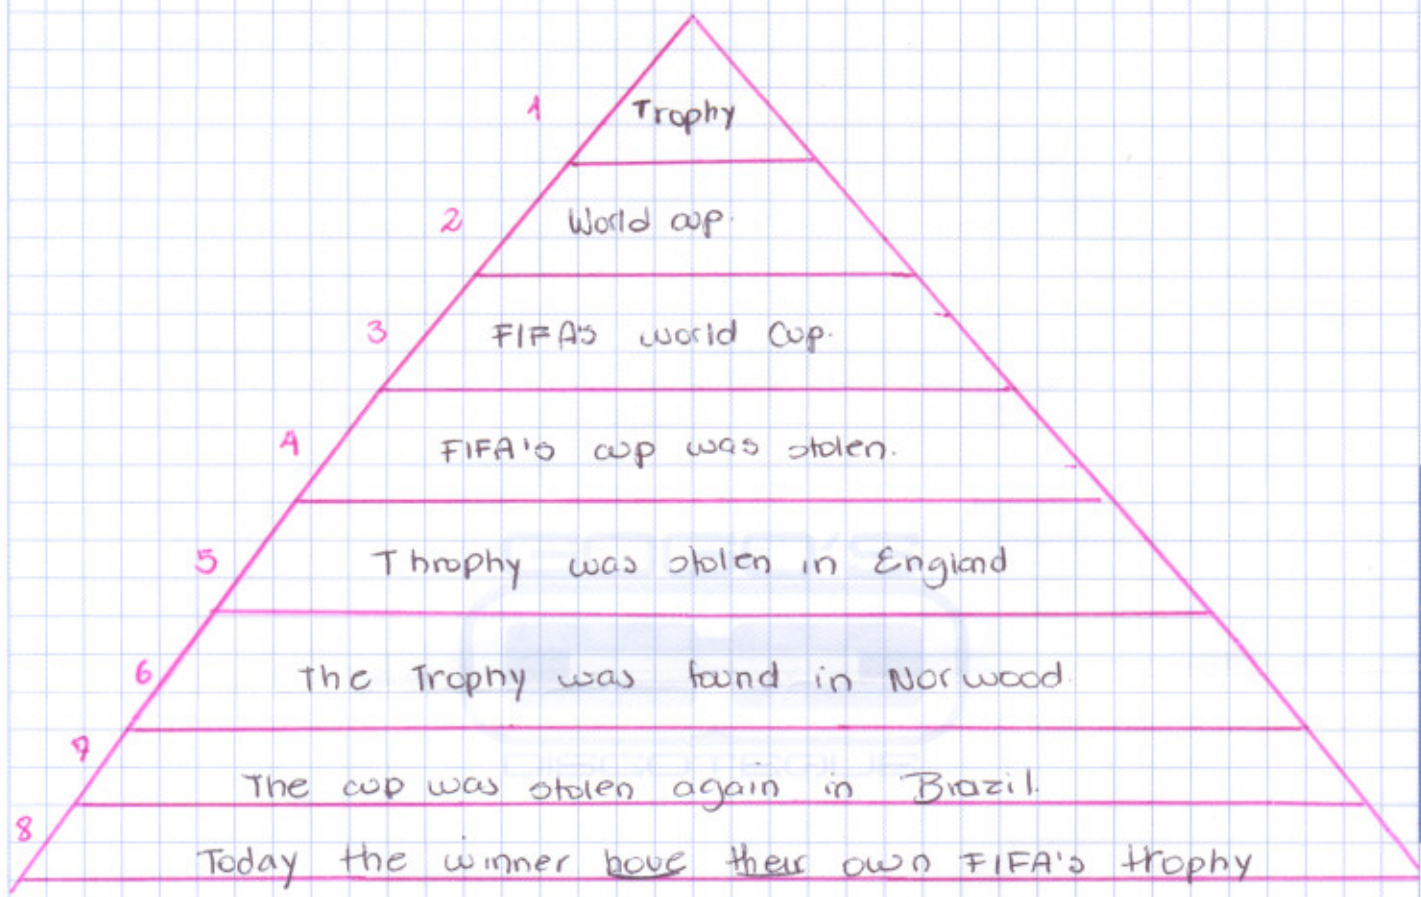 1 Trophy
2 World cup.
3 FIFA'S world Cup.
4 FIFA's cup was stolen.
5 Throphy was stolen in England
6 The Trophy was found in Norwood.
7 The cup was stolen again in Brazil.
8 Today the winner have their own FIFA's trophy